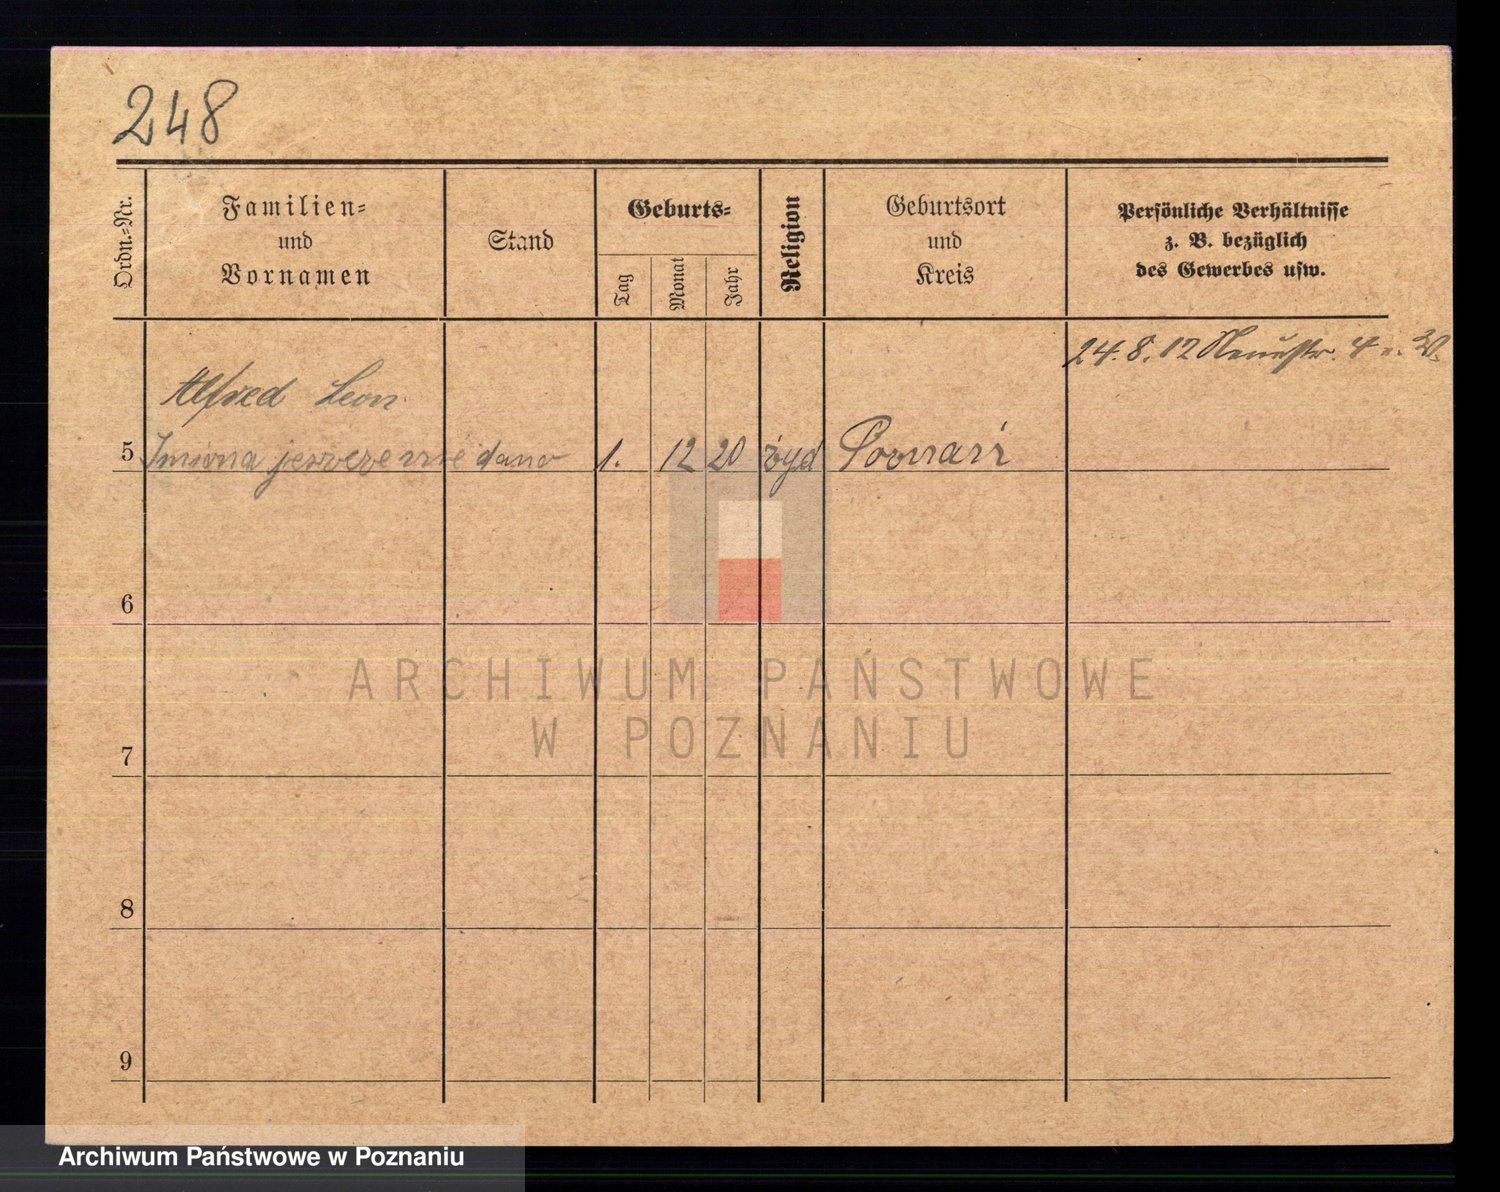 248
Ordn.-Nr.
Familien-
und
Vornamen
Stand
Geburts-
Tag
Monat
Jahr
Religion
Geburtsort
und
Kreis
Persönliche Verhältnisse
z. B. bezüglich
des Gewerbes usw.
24. 8. 12 Neuestr. 4
Alfred Leon
5 Imiona jeszcze nie dano 1. 12 20 żyd Poznań
6
7
8
9
ARCHIWUM PAŃSTWOWE
W POZNANIU
Archiwum Państwowe w Poznaniu